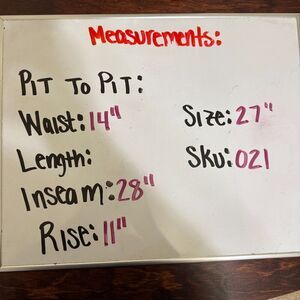 Measurements:
PIT TO PIT:
Waist: 14"
Size: 27"
Length:
Sku: 021
Inseam: 28"
Rise: 11"